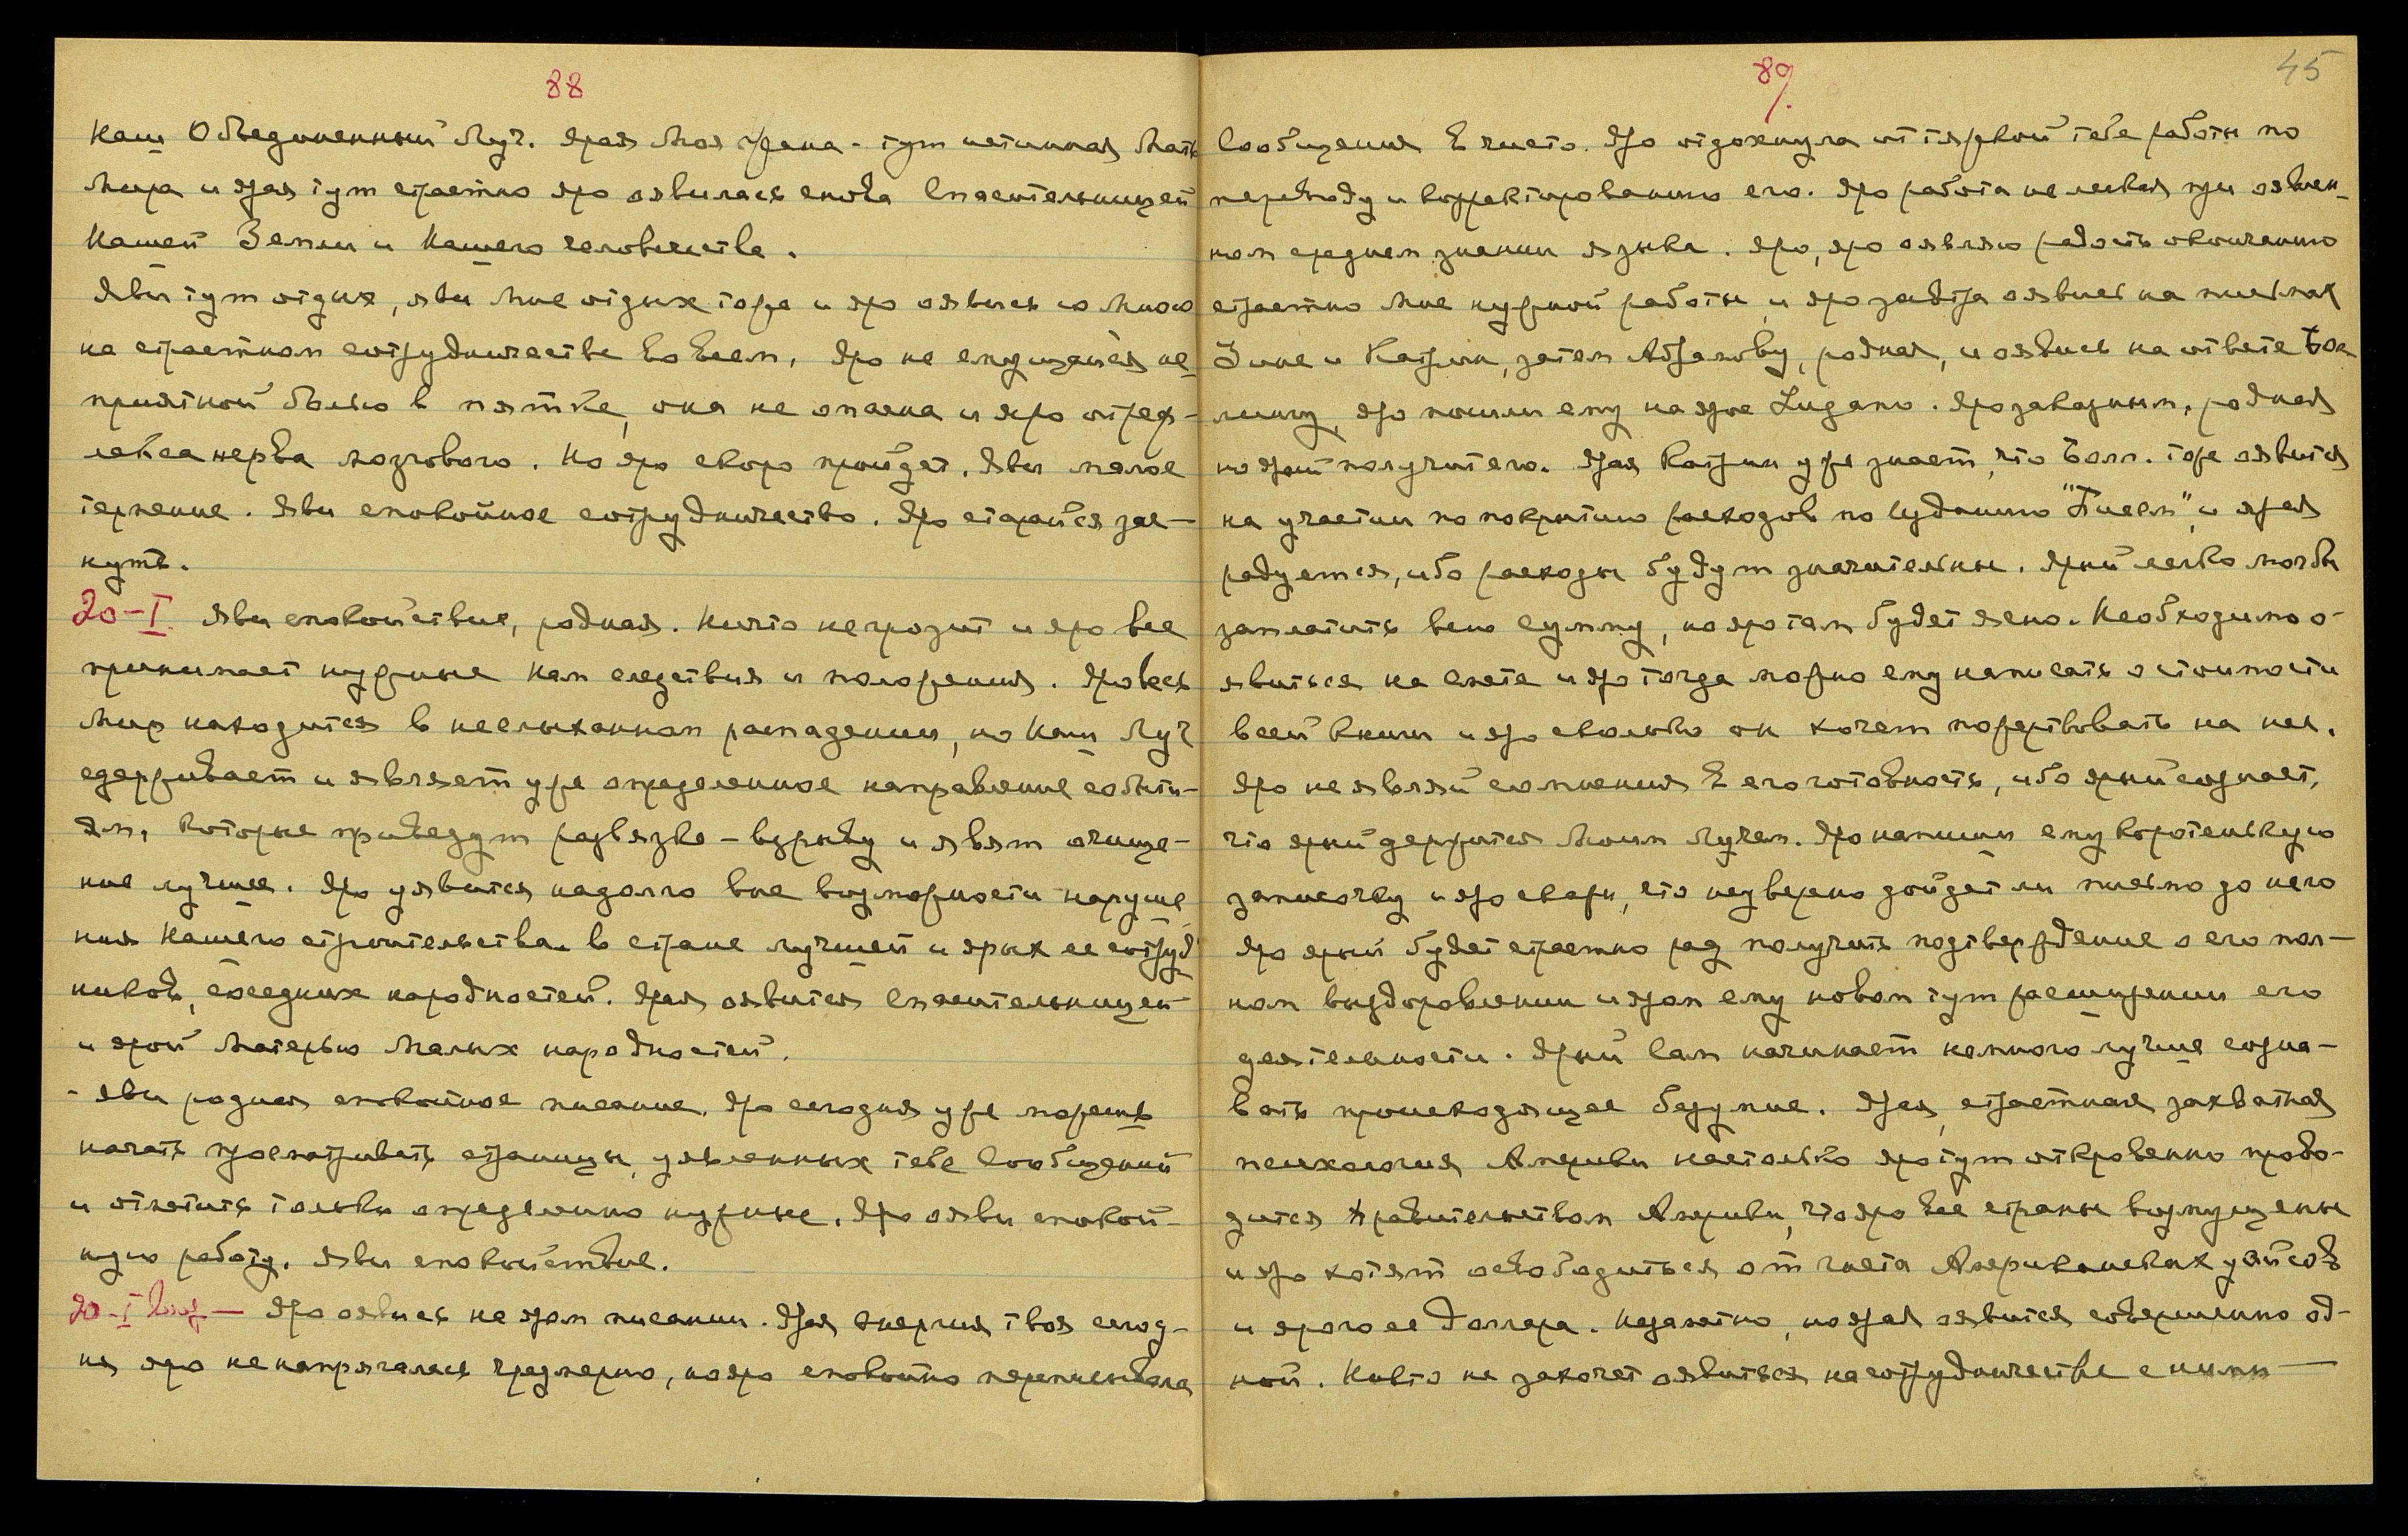 88
Наш Объединенный Луч. Ярая Моя Урана - тут истинная Мать
Мира и ярая тут страстно яро явилась снова Спасительницей
Нашей Земли и Нашего человечества.
Яви тут отдых, яви Мне отдых тоже и яро оявись со Мною
на страстном сотрудничестве во всем. Яро не смущайся не-
приятной болью в пятке, она не опасна и яро от реф-
лекса нерва мозгового. Но яро скоро пройдет. Яви малое
терпение. Яви спокойное сотрудничество. Яро старайся зас-
нуть.
20-I. Яви спокойствие, родная. Ничто не грозит и яро все
принимает нужные Нам следствия и положения. Яро весь
Мир находится в неслыханном распадении, но Наш Луч
сдерживает и являет уже определенное направление событи-
ям, которые приведут развязке - взрыву и явят очище-
ние лучшее. Яро уявится надолго вне возможности наруше-
ния Нашего строительства в стране лучшей и ярых ее сотруд-
ников, соседних народностей. Ярая оявится Спасительницей
и ярой Матерью Малых народностей.
- Яви родная спокойное писание. Яро сегодня уже можешь
начать просматривать страницы уявленных тебе Сообщений
и отметить только определенно нужные. Яро ояви спокой-
ную работу. Яви спокойствие.
20-I веч — Яро оявись на яром писании. Ярая энергия твоя сегод-
ня яро не напрягалась чрезмерно, но яро спокойно переписывала
89.
45
Сообщения в чисто. Яро отдохнула от тяжкой тебе работы по
переводу и корректированию его. Яро работа не легкая при оявлен-
ном среднем знании языка. Яро, яро оявляю радость окончанию
страстно Мне нужной работы и яро завтра оявись на письмах
Зине и Катрин, затем Абрамову, родная, и оявись на ответе Бол-
лингу, яро пошли ему на ярое Lugano. Яро заказным, родная,
но ярый получит его. Ярая Катрин уже знает, что Болл. тоже оявится
на участии по покрытию расходов по изданию "Писем", и ярая
радуется, ибо расходы будут значительны. Ярый легко мог бы
заплатить всю сумму, но яро там будет ясно. Необходимо о-
явиться на смете и яро тогда можно ему написать о стоимости
всей книги и яро сколько он хочет пожертвовать на нее.
Яро не являй сомнения в его готовность, ибо ярый сознает,
что ярый держится Моим Лучем. Яро напиши ему коротенькую
записочку и яро скажи, что неуверена дойдет ли письмо до него
Яро ярый будет страстно рад получить подтверждение о его пол-
ном выздоровлении и яром ему новом тут расширении его
деятельности. Ярый Сам начинает немного лучше созна-
вать происходящее безумие. Ярая, страстная захватная
психология Америки настолько яро тут откровенно прово-
дится Правительством Америки, что яро все страны возмущены
и яро хотят освободиться от гнета Американских
и ярого ее Доллара. Незаметно, но ярая оявится совершенно од-
ной. Никто не захочет оявиться на сотрудничестве с ними —